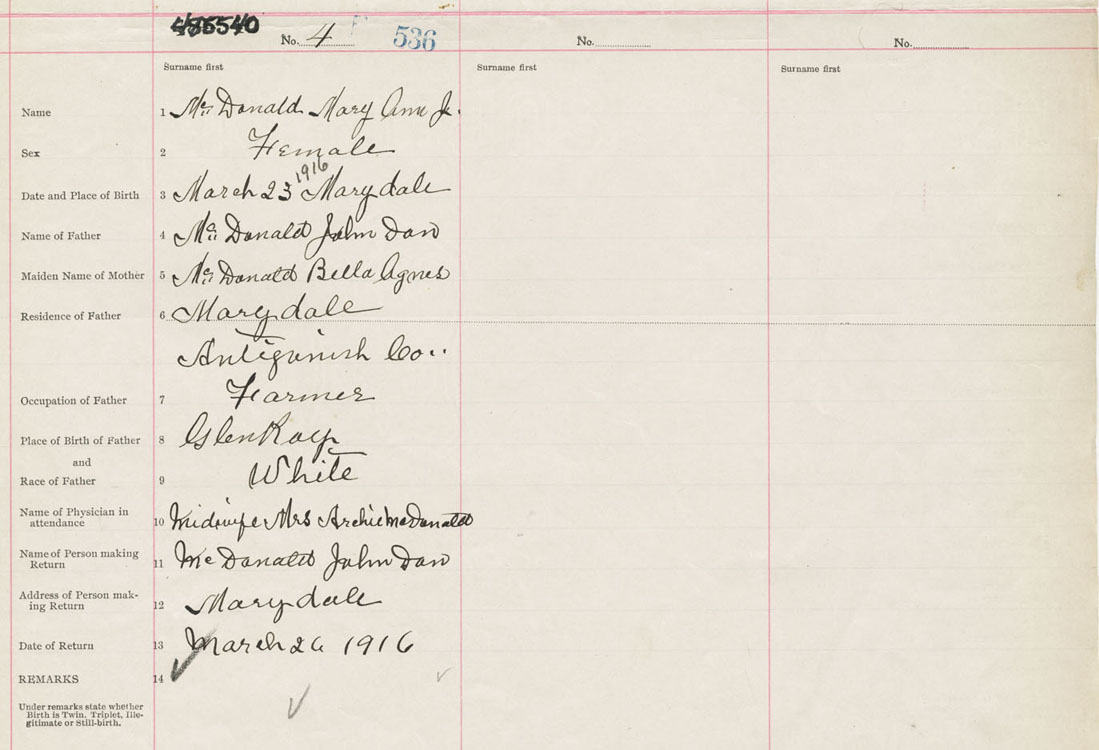 No. 4 536 No. No.
Surname first Surname first Surname first
Name 1 Mc Donald Mary Ann Jr.
Sex 2 Female
Date and Place of Birth 3 March 23 1916 Marydale
Name of Father 4 Mc Donald John Dan
Maiden Name of Mother 5 Mc Donald Bella Agnes
Residence of Father 6 Marydale
Antigonish Co..
Occupation of Father 7 Farmer
Place of Birth of Father 8 Glen Roy
and
Race of Father 9 White
Name of Physician in
attendance 10 Midwife Mrs Archie McDonald
Name of Person making
Return 11 Mc Donald John Dan
Address of Person mak-
ing Return 12 Marydale
Date of Return 13 March 26 1916
REMARKS 14
Under remarks state whether
Birth is Twin. Triplet, Ille-
gitimate or Still-birth.